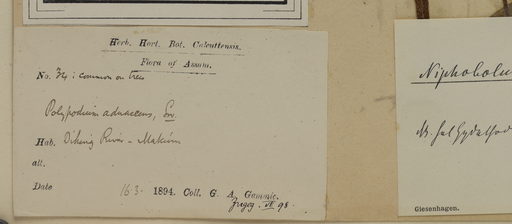 Herb. Hort. Bot. Calcuttensis.
Flora of Assam.
No. : common on trees
Polypodium adnascens, Sw
Hab. Dihing River - Makum
alt.
Date 16.3. 1894. Coll. G. A. Gammie.
Niphobolu
Giesenhagen.